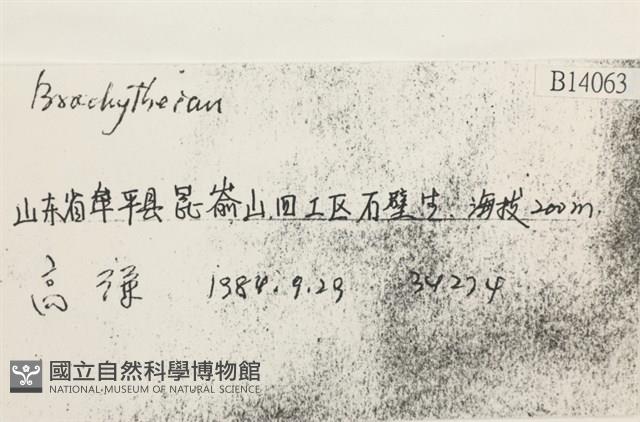 Brachytheciam
B14063
山东省牟平县昆嵛山.回工区石壁生.海拔200m.
高谦 1984.9.29 34274
國立自然科學博物館
NATIONAL MUSEUM OF NATURAL SCIENCE